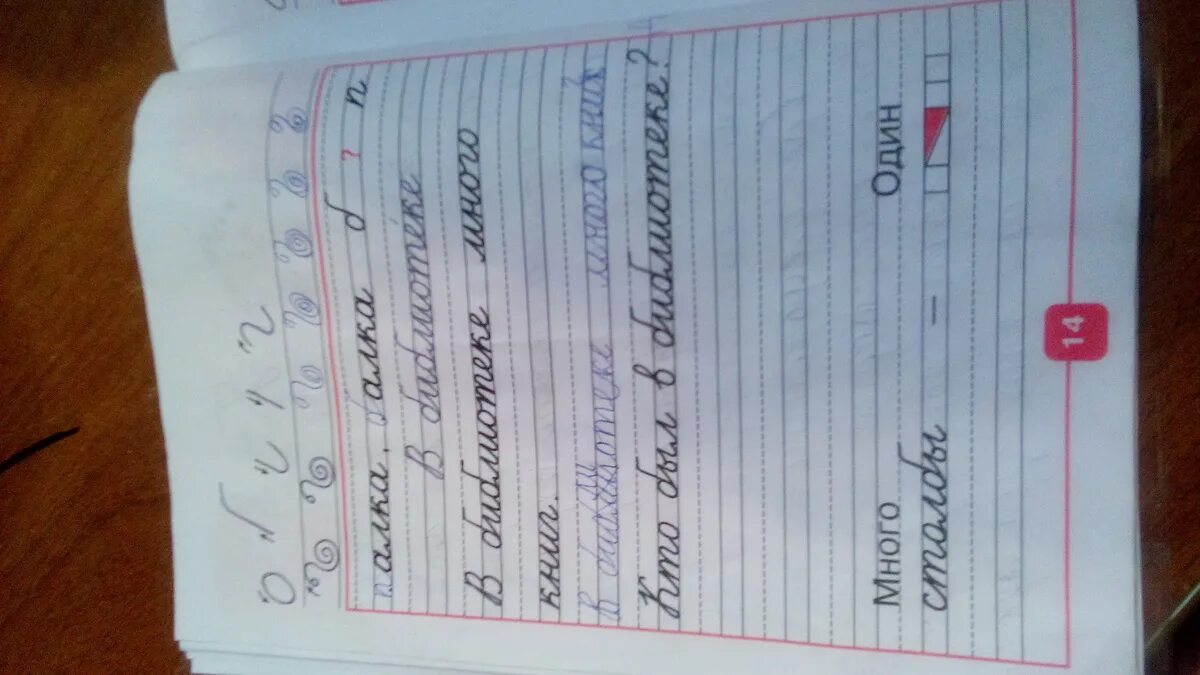 палка, балка б ? п
В библиотеке
В библиотеке много
книг.
В библиотеке много книг
Кто был в библиотеке?
Много Один
столбы –
14